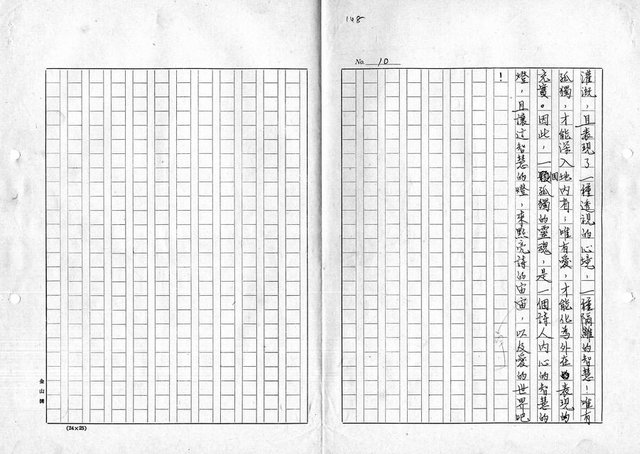 148
No. 10
灌溉，且表現了一種透視的心境，一種隔離的智慧；唯有
孤獨，才能深入地內省；唯有愛，才能化為外在的表現的
充實。因此，一個孤獨的靈魂，是一個詩人內心的智慧的
燈，且讓這智慧的燈，來點亮詩的宙宙，以及愛的世界吧
！
金山牌
(24×25)